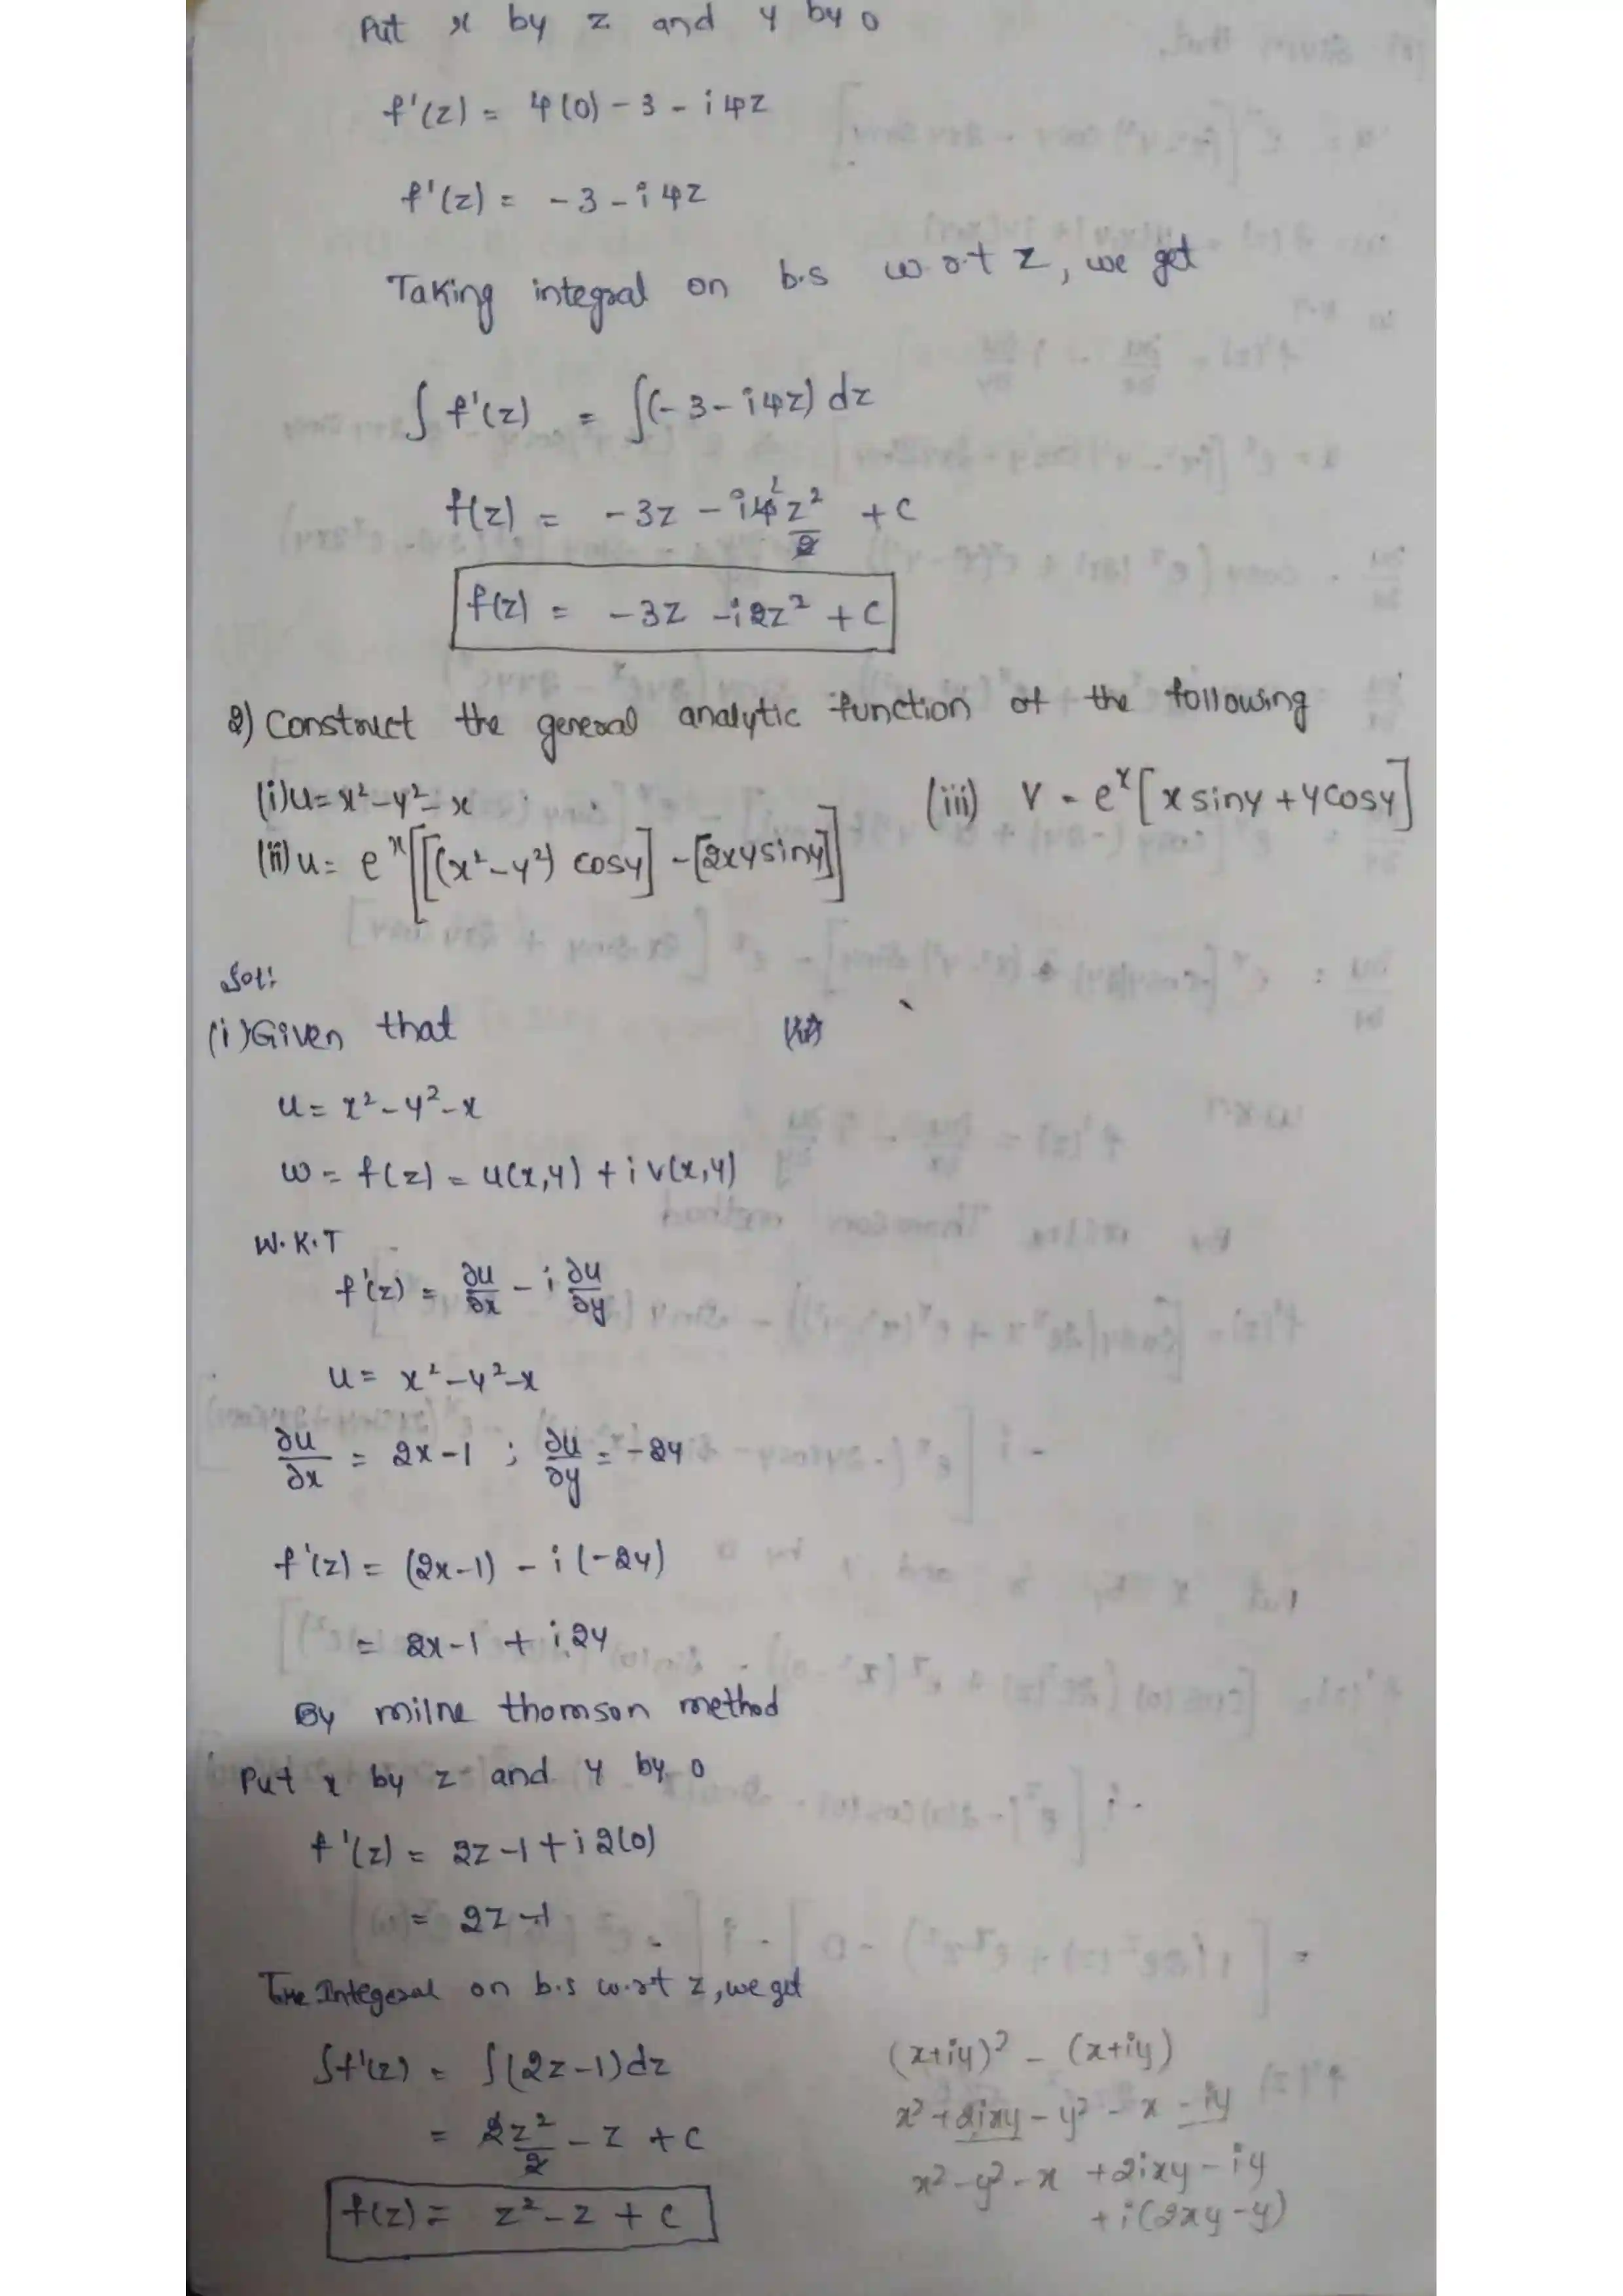 Put x by z and y by 0
f'(z) = 4(0) - 3 - i4z
f'(z) = -3 - i4z
Taking integral on b.s w.r.t z, we get
∫ f'(z) = ∫(-3 - i4z) dz
f(z) = -3z - i4 z²/2 + c
f(z) = -3z - i2z² + c
2) Construct the general analytic function of the following
(i) u = x² - y² - x
(iii) v = e^x [x siny + y cosy]
(ii) u = e^x [[(x² - y²) cosy] - [2xy siny]]
Sol:
(i) Given that
u = x² - y² - x
w = f(z) = u(x,y) + i v(x,y)
W.K.T
f'(z) = ∂u/∂x - i ∂u/∂y
u = x² - y² - x
∂u/∂x = 2x - 1 ; ∂u/∂y = -2y
f'(z) = (2x-1) - i(-2y)
= 2x - 1 + i2y
By milne thomson method
Put x by z and y by 0
f'(z) = 2z - 1 + i2(0)
= 2z - 1
Integeral on b.s w.r.t z, we get
∫f'(z) = ∫(2z-1)dz
= 2z²/2 - z + c
f(z) = z² - z + c
(x+iy)² - (x+iy)
x² + 2ixy - y² - x - iy
x² - y² - x + 2ixy - iy
+ i(2xy - y)